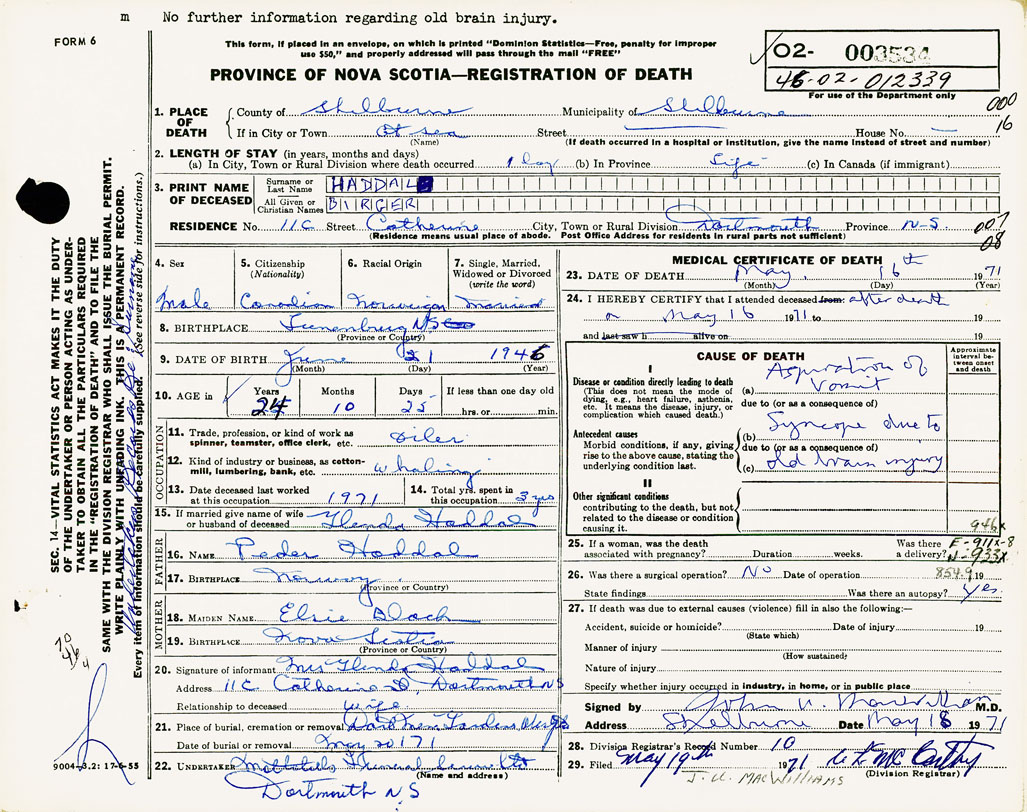 m No further information regarding old brain injury.
FORM 6
This form, if placed in an envelope, on which is printed "Dominion Statistics—Free, penalty for improper
use $50," and properly addressed will pass through the mail "FREE"
PROVINCE OF NOVA SCOTIA—REGISTRATION OF DEATH
02- 003534
46-02-012339
For use of the Department only
000
16
1. PLACE OF DEATH
County of Shelburne Municipality of Shelburne
If in City or Town At sea Street House No.
(Name) (If death occurred in a hospital or institution, give the name instead of street and number)
2. LENGTH OF STAY (in years, months and days)
(a) In City, Town or Rural Division where death occurred 1 day (b) In Province Life (c) In Canada (if immigrant)
3. PRINT NAME OF DECEASED
Surname or Last Name HADDAL
All Given or Christian Names BIRGER
RESIDENCE No. 11C Street Catherine City, Town or Rural Division Dartmouth Province N-S.
(Residence means usual place of abode. Post Office Address for residents in rural parts not sufficient)
007
08
4. Sex 5. Citizenship (Nationality) 6. Racial Origin 7. Single, Married, Widowed or Divorced (write the word)
Male Canadian Norwigan Married
8. BIRTHPLACE Lunenburg NS
(Province or Country)
9. DATE OF BIRTH June 21 1946
(Month) (Day) (Year)
10. AGE in Years Months Days If less than one day old
24 10 25 hrs. or min.
OCCUPATION
11. Trade, profession, or kind of work as
spinner, teamster, office clerk, etc. oiler
12. Kind of industry or business, as cotton-
mill, lumbering, bank, etc. whaling
13. Date deceased last worked
at this occupation 1971
14. Total yrs. spent in
this occupation 3 yrs
15. If married give name of wife
or husband of deceased Glenda Haddal
FATHER
16. NAME Peder Haddal
17. BIRTHPLACE Norway
(Province or Country)
MOTHER
18. MAIDEN NAME Elsie
19. BIRTHPLACE Nova Scotia
(Province or Country)
20. Signature of informant Mrs Glenda Haddal
Address 11C Catherine St, Dartmouth NS
Relationship to deceased wife
21. Place of burial, cremation or removal Gardens
Date of burial or removal May 20 / 71
22. UNDERTAKER Funeral home Ltd
(Name and address)
Dartmouth N.S
MEDICAL CERTIFICATE OF DEATH
23. DATE OF DEATH May 16th 1971
(Month) (Day) (Year)
24. I HEREBY CERTIFY that I attended deceased from: after death
on May 16 1971 to 19
and last saw h alive on 19
CAUSE OF DEATH
Approximate interval between onset and death
I
Disease or condition directly leading to death
(This does not mean the mode of
dying, e.g., heart failure, asthenia,
etc. It means the disease, injury, or
complication which caused death.)
(a) Aspiration of
Vomit
due to (or as a consequence of)
Antecedent causes
Morbid conditions, if any, giving
rise to the above cause, stating the
underlying condition last.
(b) Syncope due to
due to (or as a consequence of)
(c) old brain injury
II
Other significant conditions
contributing to the death, but not
related to the disease or condition
causing it.
946x
25. If a woman, was the death
associated with pregnancy? Duration weeks. Was there a delivery?
E-911x-8
N-933x
26. Was there a surgical operation? NO Date of operation 19
854.9
State findings Was there an autopsy? yes
27. If death was due to external causes (violence) fill in also the following:—
Accident, suicide or homicide? Date of injury 19
(State which)
Manner of injury
(How sustained)
Nature of injury
Specify whether injury occurred in industry, in home, or in public place
Signed by John M.D.
Address Shelburne Date May 18 1971
28. Division Registrar's Record Number 10
29. Filed May 19th 1971
(Division Registrar)
J. U. MACWILLIAMS
SEC. 14—VITAL STATISTICS ACT MAKES IT THE DUTY
OF THE UNDERTAKER OR PERSON ACTING AS UNDER-
TAKER TO OBTAIN ALL THE PARTICULARS REQUIRED
IN THE "REGISTRATION OF DEATH" AND TO FILE THE
SAME WITH THE DIVISION REGISTRAR WHO SHALL ISSUE THE BURIAL PERMIT.
WRITE PLAINLY WITH UNFADING INK. THIS IS A PERMANENT RECORD.
Every item of information should be carefully supplied. (See reverse side for instructions.)
70
46
4
9004-3.2: 17-6-55